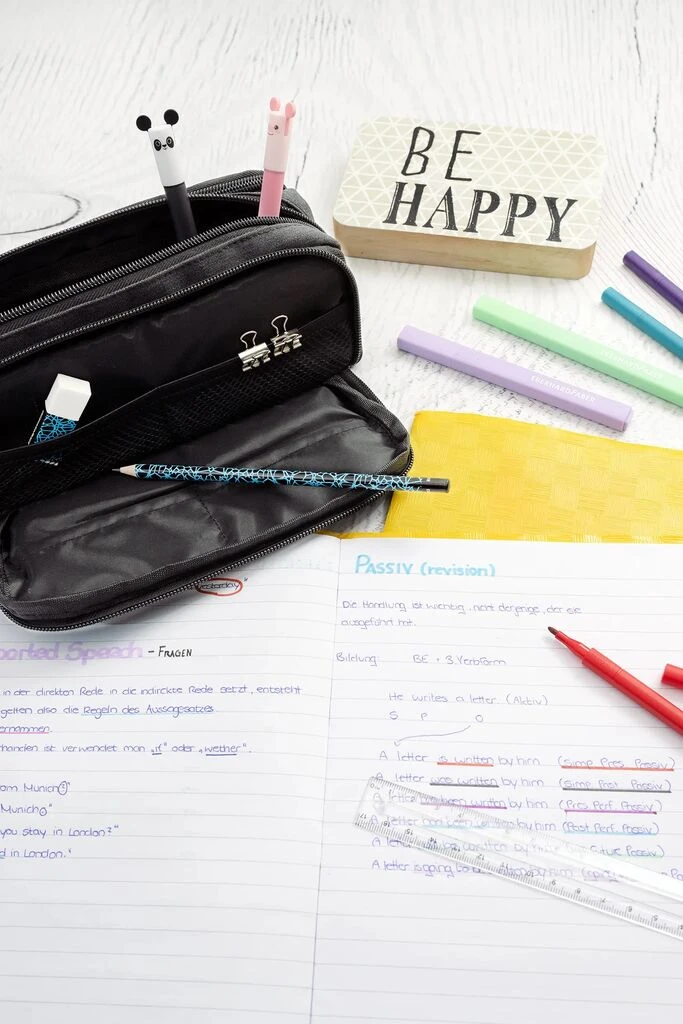 BE
HAPPY
EBERHARD FABER
yesterday"
orted Speech - FRAGEN
in der direkten Rede in die indirekte Rede setzt, entsteht
gelten also die Regeln des Aussagesatzes
ernommen.
handen ist verwendet man „if" oder „wether".
om Munich?"
Munich
you stay in London?"
d in London."
PASSIV (revision)
Die Handlung ist wichtig, nicht derjenige, der sie
ausgeführt hat.
Bildung: BE + 3. Verbform
He writes a letter. (Aktiv)
S P O
A letter is written by him (simp Pres Passiv)
A letter was written by him (simp Past Passiv)
A letter has been written by him (Pres Perf Passiv)
A letter had been written by him (Past Perf Passiv)
A letter written by him Future Passiv)
A letter is going to by him